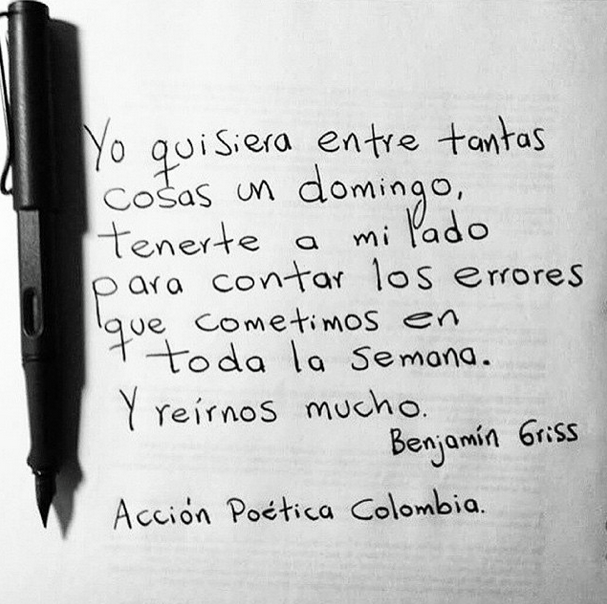 Yo quisiera entre tantas
cosas un domingo,
tenerte a mi lado
para contar los errores
que cometimos en
toda la semana.
Y reírnos mucho.
Benjamín Griss
Acción Poética Colombia.